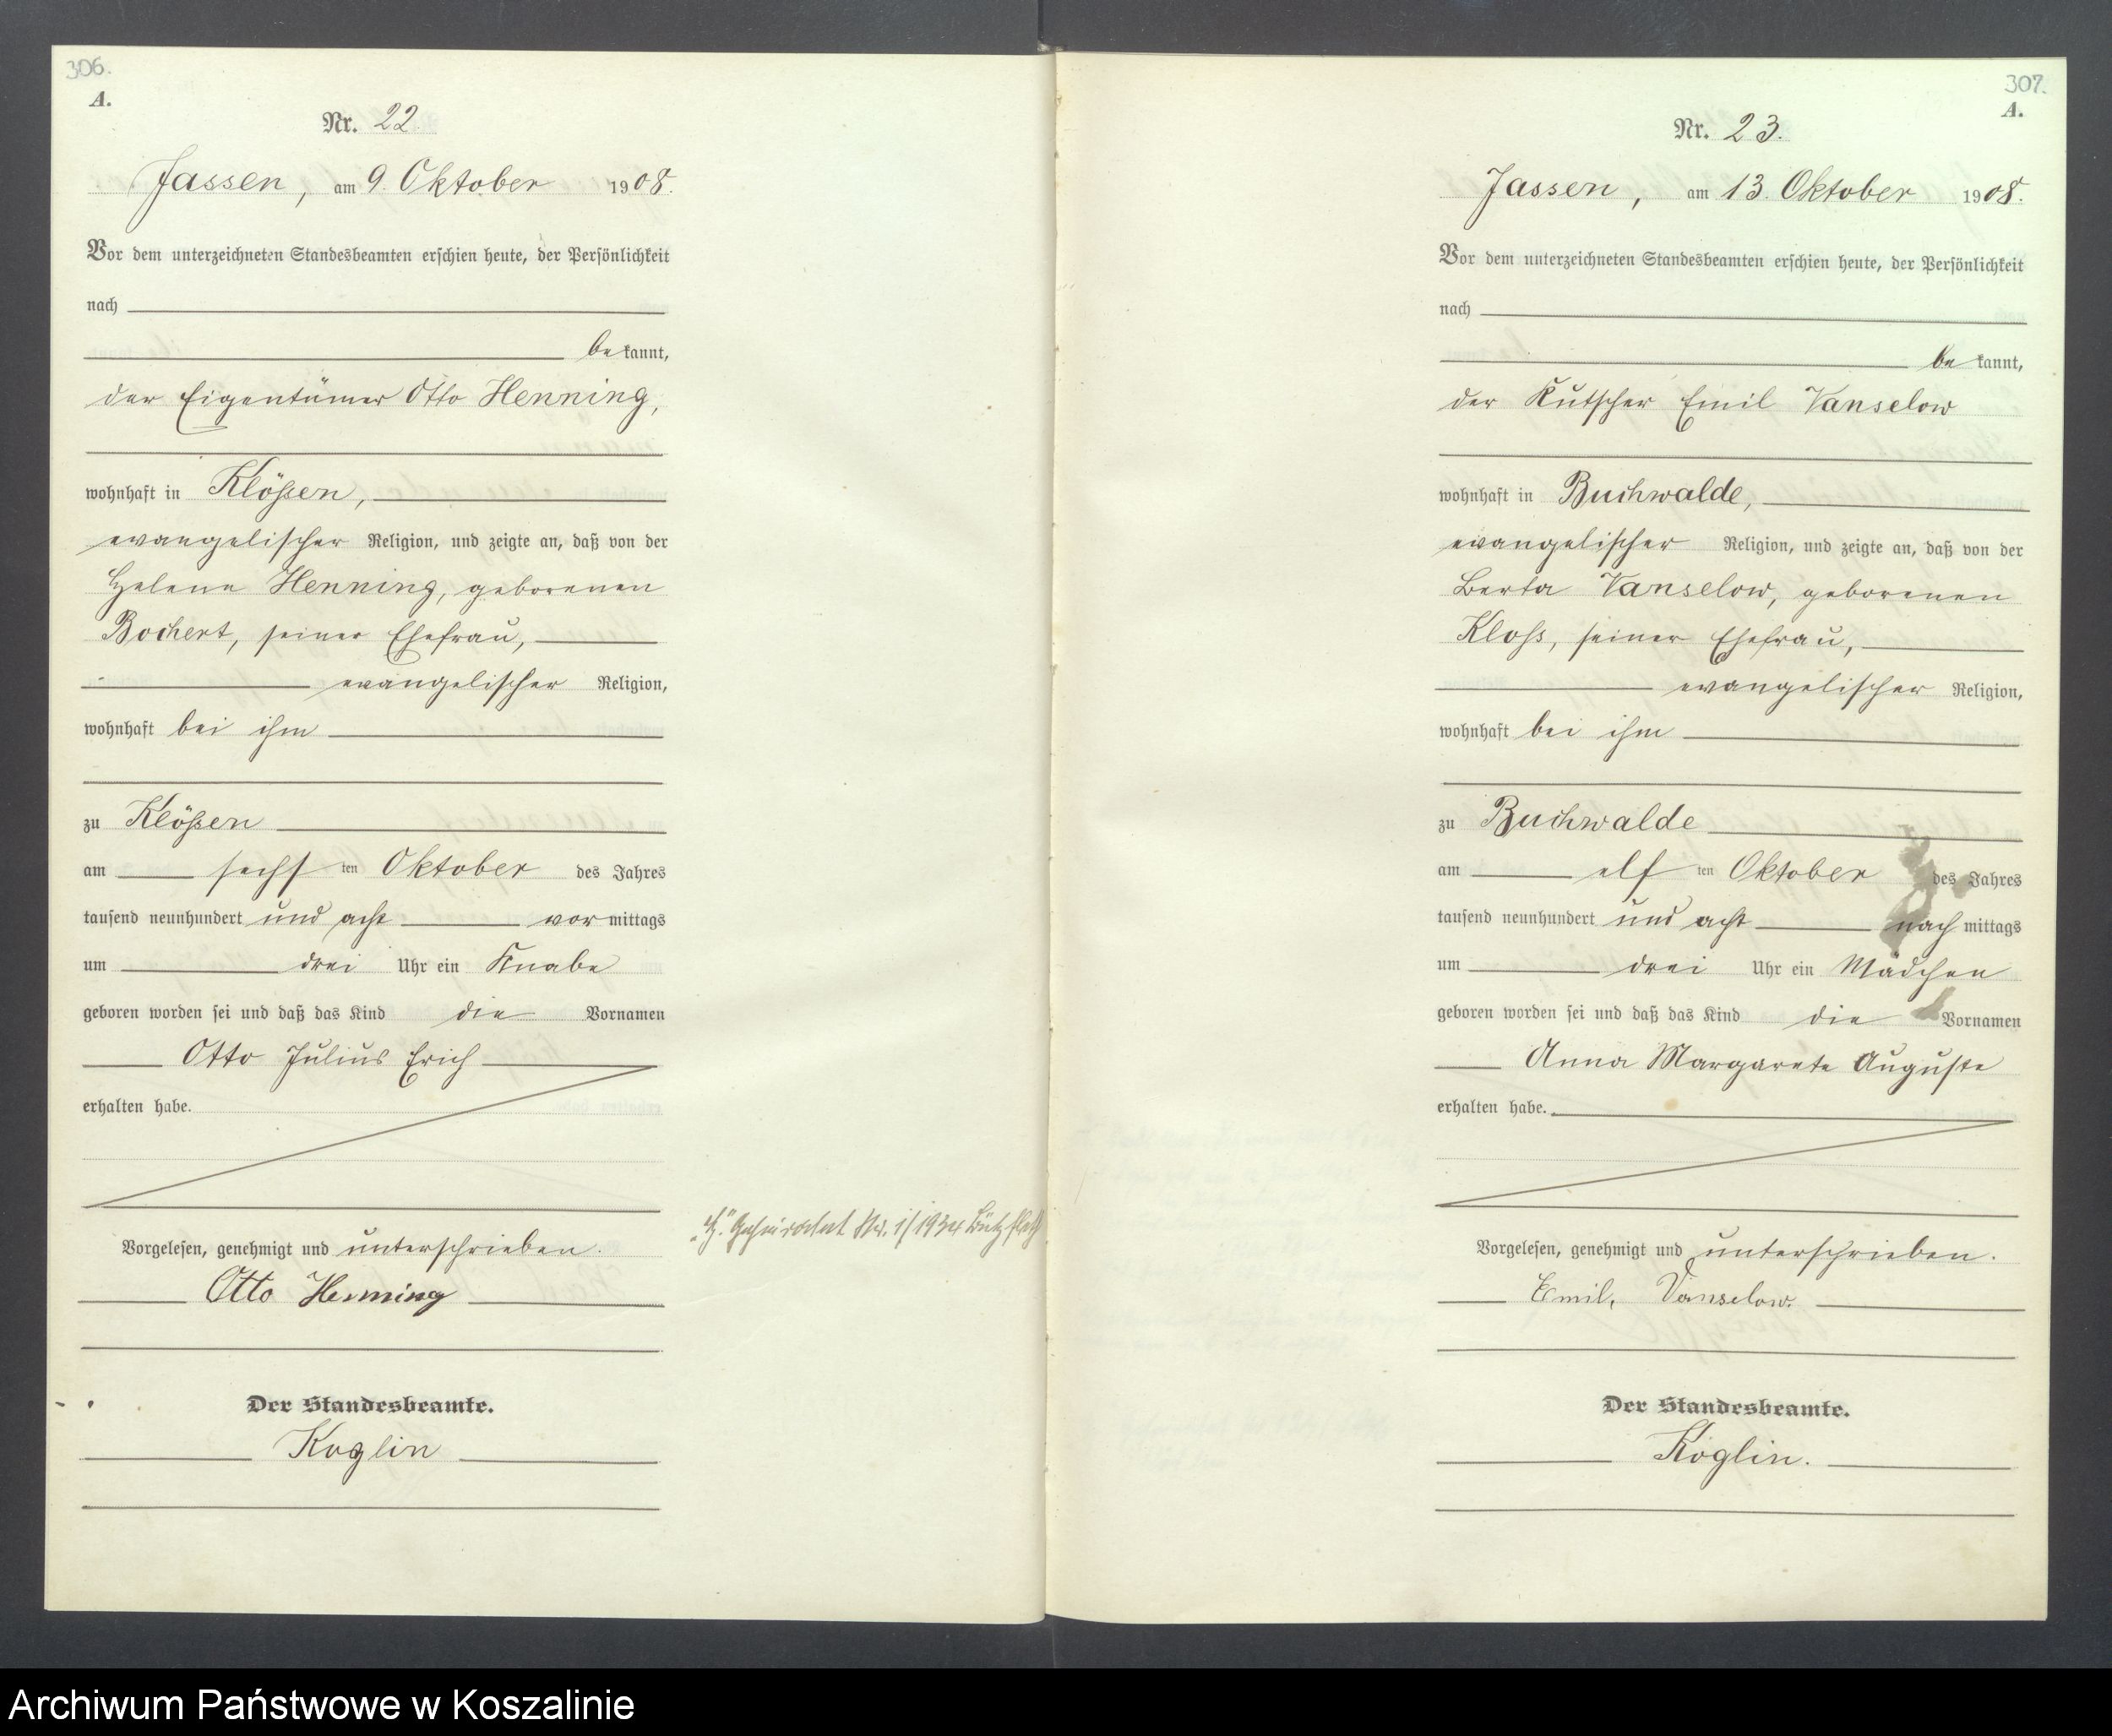 306.
A.
Nr. 22
Jassen, am 9. Oktober 1908.
Vor dem unterzeichneten Standesbeamten erschien heute, der Persönlichkeit
nach
bekannt,
der Eigentümer Otto Henning,
wohnhaft in Klößen,
evangelischer Religion, und zeigte an, daß von der
Helene Henning, geborenen
Bochert, seiner Ehefrau,
evangelischer Religion,
wohnhaft bei ihm
zu Klößen
am sechsten Oktober des Jahres
tausend neunhundert und acht vormittags
um drei Uhr ein Knabe
geboren worden sei und daß das Kind die Vornamen
Otto Julius Erich
erhalten habe.
Vorgelesen, genehmigt und unterschrieben.
Otto Henning
Der Standesbeamte.
Koglin
Nr. 1/1934
307.
A.
Nr. 23.
Jassen, am 13. Oktober 1908.
Vor dem unterzeichneten Standesbeamten erschien heute, der Persönlichkeit
nach
bekannt,
der Kutscher Emil Vanselow
wohnhaft in Buchwalde,
evangelischer Religion, und zeigte an, daß von der
Berta Vanselow, geborenen
Kloß, seiner Ehefrau,
evangelischer Religion,
wohnhaft bei ihm
zu Buchwalde
am elften Oktober des Jahres
tausend neunhundert und acht nachmittags
um drei Uhr ein Mädchen
geboren worden sei und daß das Kind die Vornamen
Anna Margarete Auguste
erhalten habe.
Vorgelesen, genehmigt und unterschrieben.
Emil, Vanselow.
Der Standesbeamte.
Koglin.
Archiwum Państwowe w Koszalinie